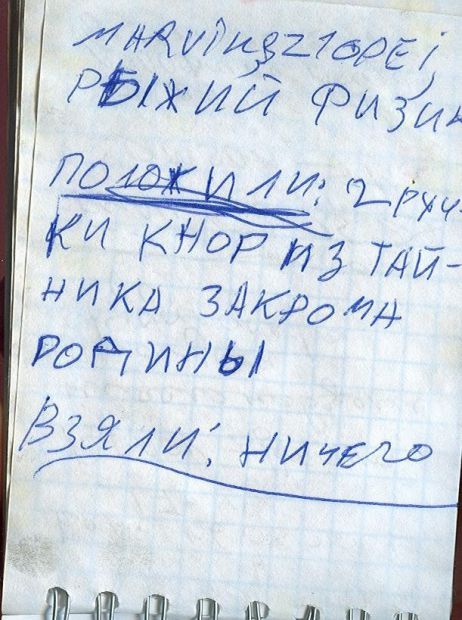 РЫЖИЙ ФИЗИК
ПОЛОЖИЛИ: 2 РУЧ-
КИ КНОР ИЗ ТАЙ-
НИКА ЗАКРОМА
РОДИНЫ
ВЗЯЛИ: НИЧЕГО